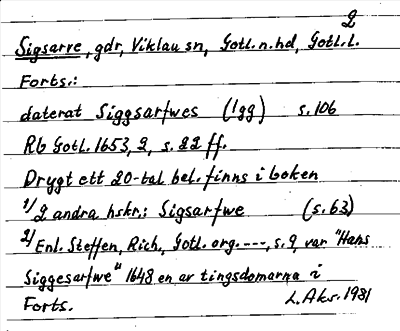 2
Sigsarve, gdr, Viklau sn, Gotl.n.hd, Gotl.l.
Forts.:
daterat Siggsarfwes (1gg) s.106
Rb Gotl.1653, 2, s.22 ff.
Drygt ett 20-tal bel. finns i boken
1/ 2 andra hskr.: Sigsarfwe (s.63)
2/ Enl. Steffen, Rich., Gotl. org. ---, s.9, var "Hans
Siggesarfwe" 1648 en av tingsdomarna i
Forts. L.Akr.1981